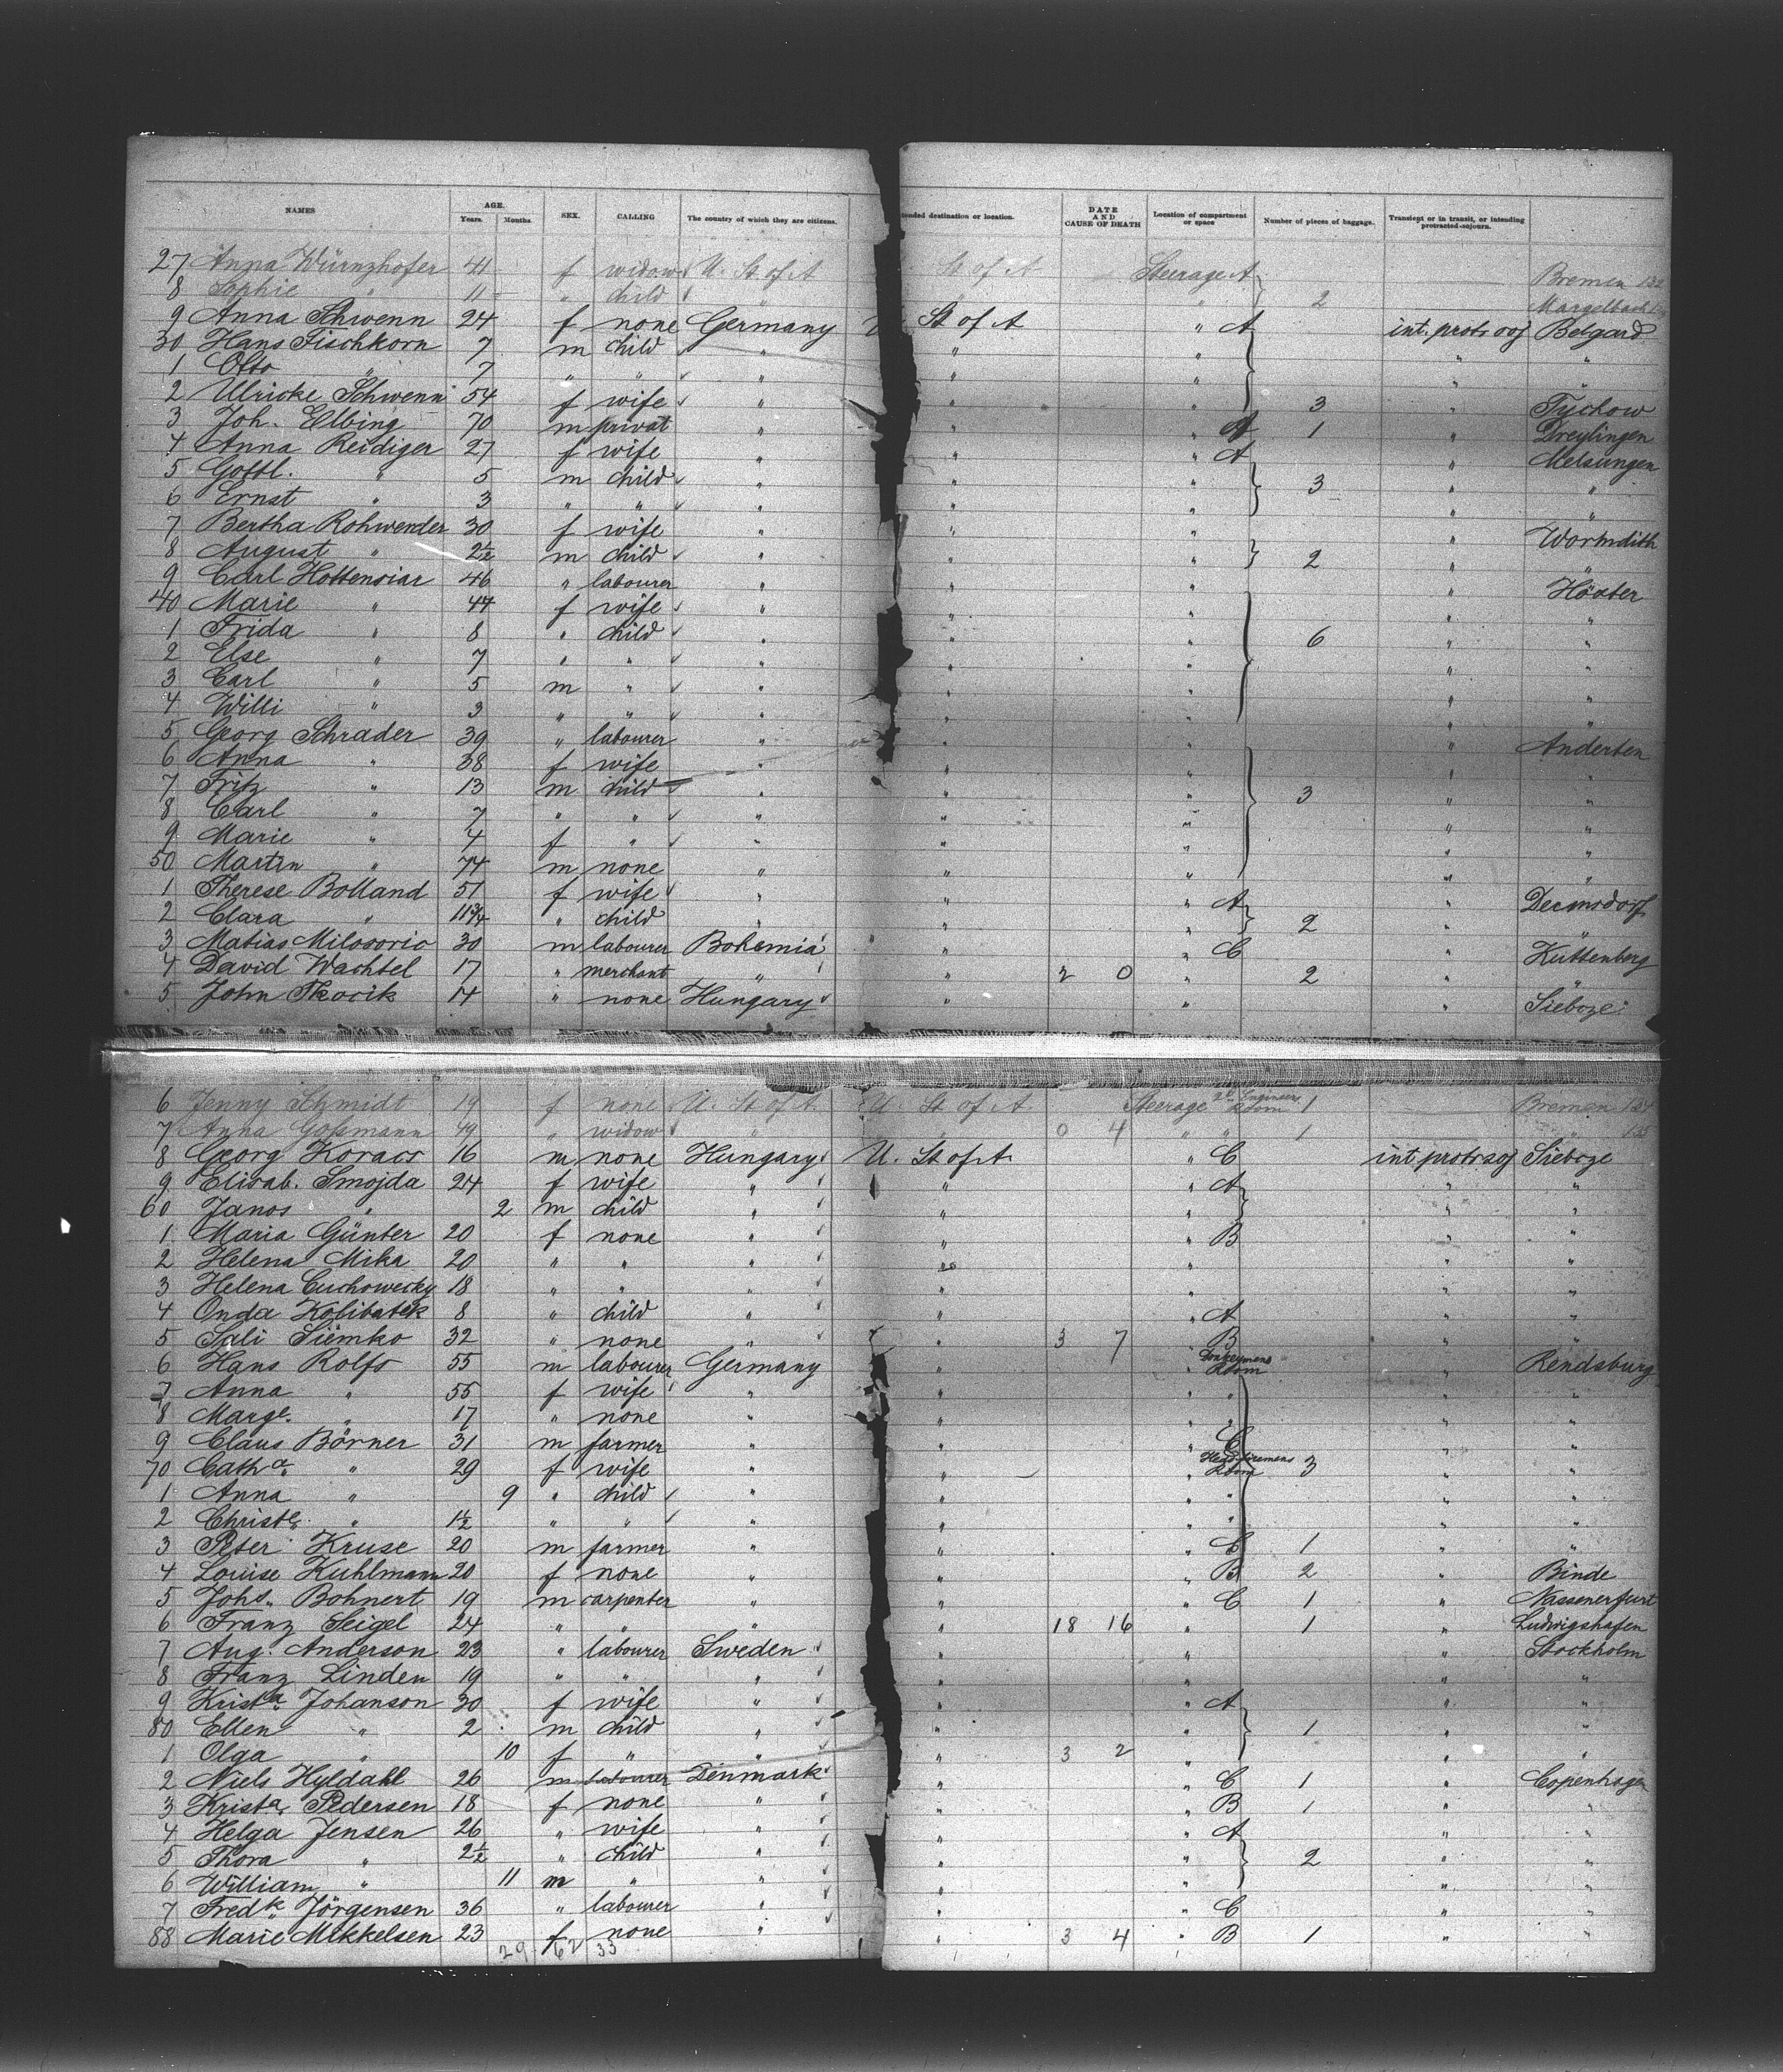 NAMES AGE. Years. Months. SEX. CALLING The country of which they are citizens. ended destination or location. DATE AND CAUSE OF DEATH Location of compartment or space Number of pieces of baggage. Transient or in transit, or intending protracted sojourn.
27 Anna Würnzhofer 41 f widow U. St of A St of A Steerage A Bremen 132
8 Sophie " 11 " child " " 2 Margelbach
9 Anna Schwenn 24 f none Germany U St of A " A int. protr soj Belgard
30 Hans Fischkorn 7 m child " " " " "
1 Otto " 7 " " " " " " "
2 Ulricke Schwenn 54 f wife " " " 3 " Tychow
3 Joh. Elbing 70 m privat " " " 1 " Dreylingen
4 Anna Reidiger 27 f wife " " " A " Melsungen
5 Gottl. " 5 m child " " " 3 " "
6 Ernst " 3 " " " " " " "
7 Bertha Rohwerder 30 f wife " " " " Wormdith
8 August " 2½ m child " " " 2 " "
9 Carl Hottensiar 46 " labourer " " " " Höxter
40 Marie " 44 f wife " " " " "
1 Frida " 8 " child " " " 6 " "
2 Else " 7 " " " " " " "
3 Carl " 5 m " " " " " "
4 Willi " 3 " " " " " " "
5 Georg Schrader 39 " labourer " " " " Anderten
6 Anna " 38 f wife " " " " "
7 Fritz " 13 m child " " " 3 " "
8 Carl " 7 " " " " " " "
9 Marie " 4 f " " " " " "
50 Martin " 74 m none " " " " "
1 Therese Bolland 51 f wife " " " A " Deensdorf
2 Clara " 11¾ " child " " " 2 "
3 Matias Milosoric 30 m labourer Bohemia " " C " Küttenberg
4 David Wachtel 17 " merchant " " 2 0 " 2 " "
5 John Tkacik 14 " none Hungary " " " Sieboze
6 Jenny Schmidt 19 f none U. St of A U. St of A Steerage 2d Engineers Room 1 Bremen 134
7 Anna Goßmann 49 " widow " " 0 4 " " 1 " 135
8 Georg Kovacs 16 m none Hungary U. St of A " C int protr soj Sieboze
9 Elisab. Smojda 24 f wife " " " A " "
60 Janos " 2 m child " " " " "
1 Maria Günter 20 f none " " " B " "
2 Helena Mika 20 " " " " " " "
3 Helena Cuchowecky 18 " " " " " " "
4 Onda Kolibatek 8 " child " " " A " "
5 Sali Siemko 32 " none " " 3 7 " B " "
6 Hans Rolfs 55 m labourer Germany " " Donkeymens Room " Rendsburg
7 Anna " 55 f wife " " " " " "
8 Marge. " 17 " none " " " " " "
9 Claus Börner 31 m farmer " " " C " "
70 Catha. " 29 f wife " " " Head firemens Room 3 " "
1 Anna " 9 " child " " " " " "
2 Christe. " 1½ " " " " " " " "
3 Peter Kruse 20 m farmer " " " C 1 " "
4 Louise Kuhlmann 20 f none " " " B 2 " Binde
5 Johs. Bohnert 19 m carpenter " " " C 1 " Nassenerfurt
6 Franz Seigel 24 " " " " 18 16 " 1 " Ludwigshafen
7 Aug. Anderson 23 " labourer Sweden " " " Stockholm
8 Franz Linden 19 " " " " " " "
9 Krista. Johanson 30 f wife " " " A " "
80 Ellen " 2 m child " " " 1 " "
1 Olga " 10 f " " " 3 2 " " "
2 Niels Hyldahl 26 m labourer Denmark " " C 1 " Copenhagen
3 Krista. Pedersen 18 f none " " " B 1 " "
4 Helga Jensen 26 " wife " " " A " "
5 Thora " 2½ " child " " " 2 " "
6 William " 11 m " " " " " "
7 Fredk. Jörgensen 36 " labourer " " " C " "
88 Marie Mikkelsen 23 f none " " 3 4 " B 1 " "
29 62 33